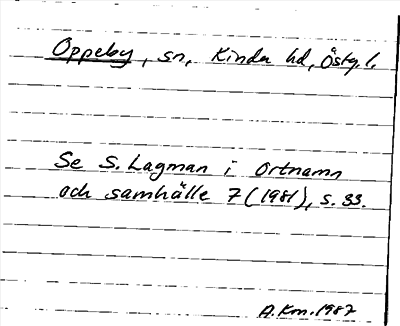 Oppeby, sn, Kinda hd, Östg.l.
Se S. Lagman i Ortnamn
och samhälle 7 (1981), s. 33.
A.Km. 1982